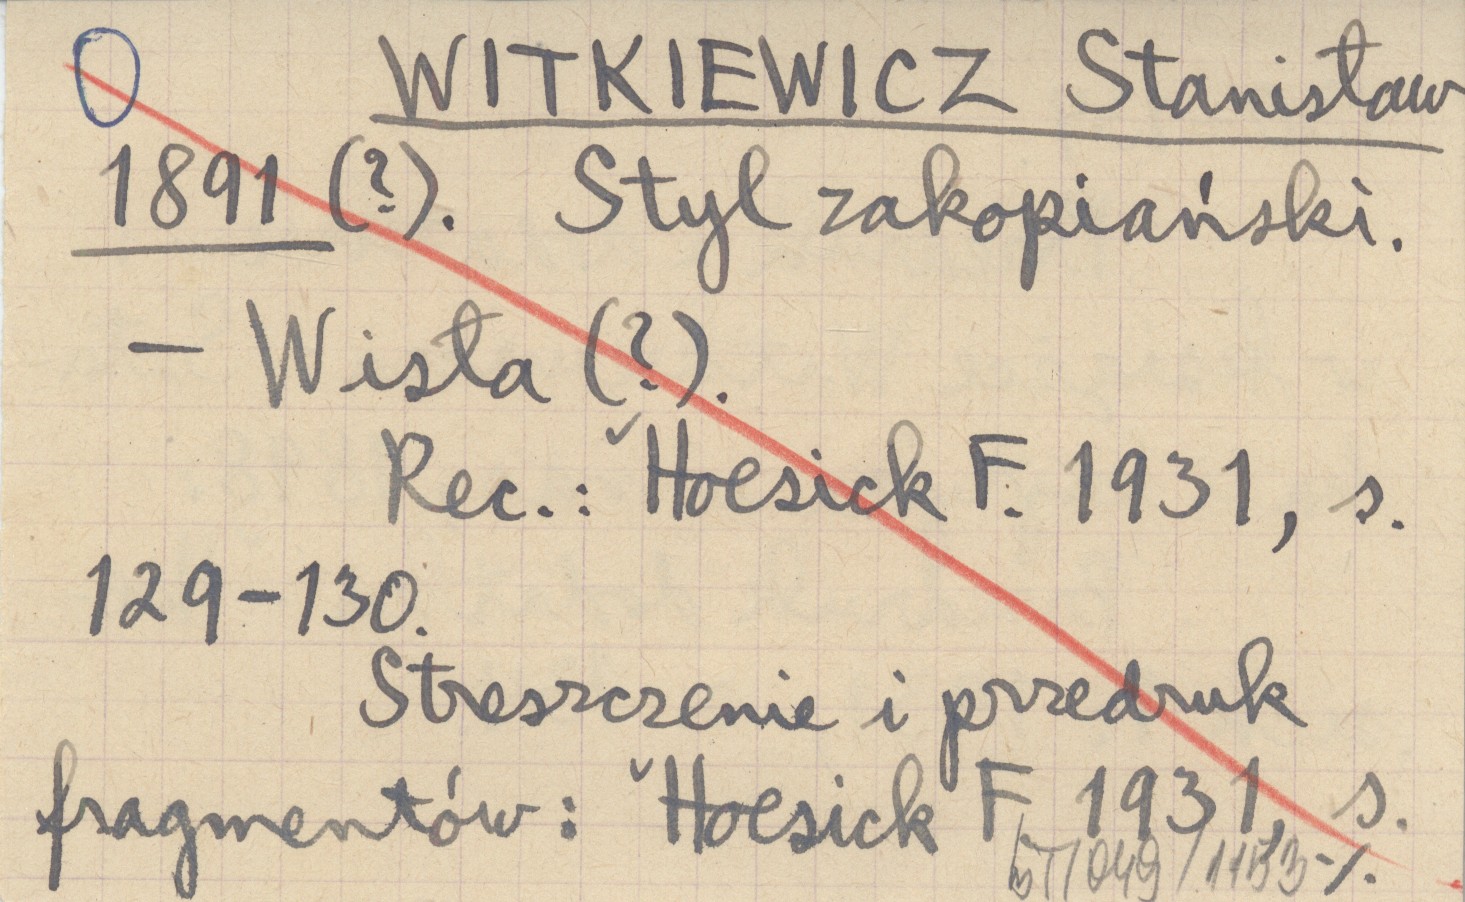 WITKIEWICZ Stanisław
1891 (?). Styl zakopiański.
– Wisła (?).
Rec.: Hoesick F. 1931, s.
129-130.
Streszczenie i przedruk
fragmentów: Hoesick F. 1931, s.